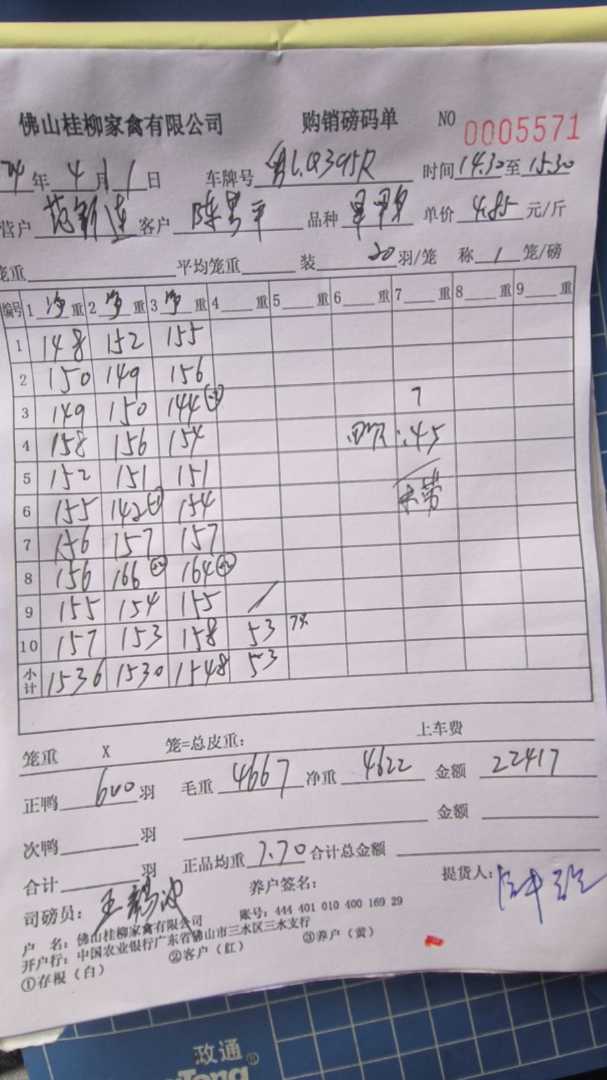 佛山桂柳家禽有限公司 购销磅码单 NO 0005571
年 4 月 1 日 车牌号 时间 14.30 至 15.30
营户 客户 陈 平 品种 单价 4.85 元/斤
笼重 平均笼重 装 20 羽/笼 称 1 笼/磅
编号 1 净 重 2 净 重 3 净 重 4 重 5 重 6 重 7 重 8 重 9 重
1 148 152 155
2 150 149 156
3 149 150 144 7
4 158 156 154 :45
5 152 151 151
6 155 142 154
7 156 157 157
8 156 166 164
9 155 154 155 /
10 157 153 158 53
小计 1536 1530 1548 53
笼重 X 笼=总皮重: 上车费
正鸭 600 羽 毛重 4667 净重 4622 金额 22417
次鸭 羽 金额
合计 羽 正品均重 7.70 合计总金额
司磅员: 养户签名: 提货人:
户 名: 佛山桂柳家禽有限公司 账号: 444 401 010 400 169 29
开户行: 中国农业银行广东省佛山市三水区三水支行
①存根(白) ②客户(红) ③养户(黄)
政通